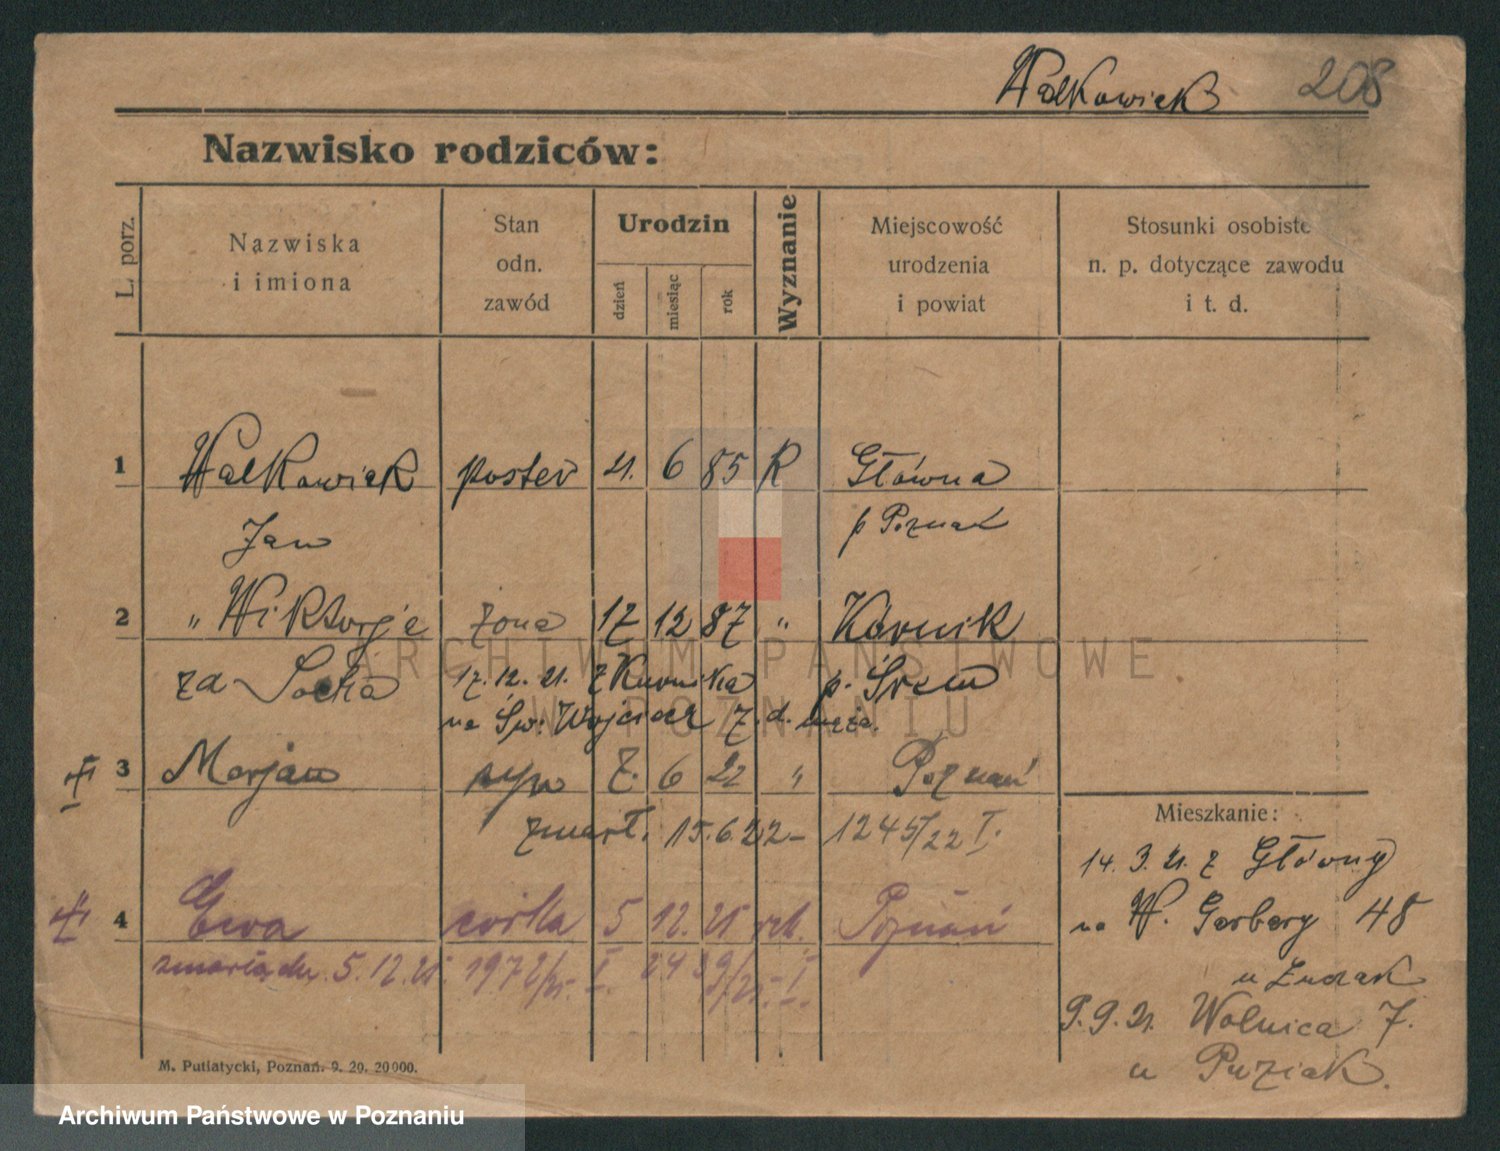 Walkowiak 208
Nazwisko rodziców:
L. porz.
Nazwiska
i imiona
Stan
odn.
zawód
Urodzin
dzień
miesiąc
rok
Wyznanie
Miejscowość
urodzenia
i powiat
Stosunki osobiste
n. p. dotyczące zawodu
i t. d.
1 Walkowiak 21. 6 85 R Główna
Jan p Poznań
2 " Wiktorja żona 17 12 87 " Kórnik
za Socha 17. 12. 21. z Kurnika p. Śrem
na Św. Wojciech 7. d. męża.
3 Marjan syn 7. 6 22 " Poznań
zmarł. 15. 6. 22 - 1245/22 I.
4 Ewa córka 5 12. 25 rk. Poznań
zmarła dn. 5. 12. 25.
Mieszkanie:
14. 3. 21. z Główny
na W. Garbary 48
u
9. 9. 21. Wolnica 7.
u Puziak.
M. Putiatycki, Poznań. 9. 20. 20000.
ARCHIWUM PAŃSTWOWE
W POZNANIU
Archiwum Państwowe w Poznaniu